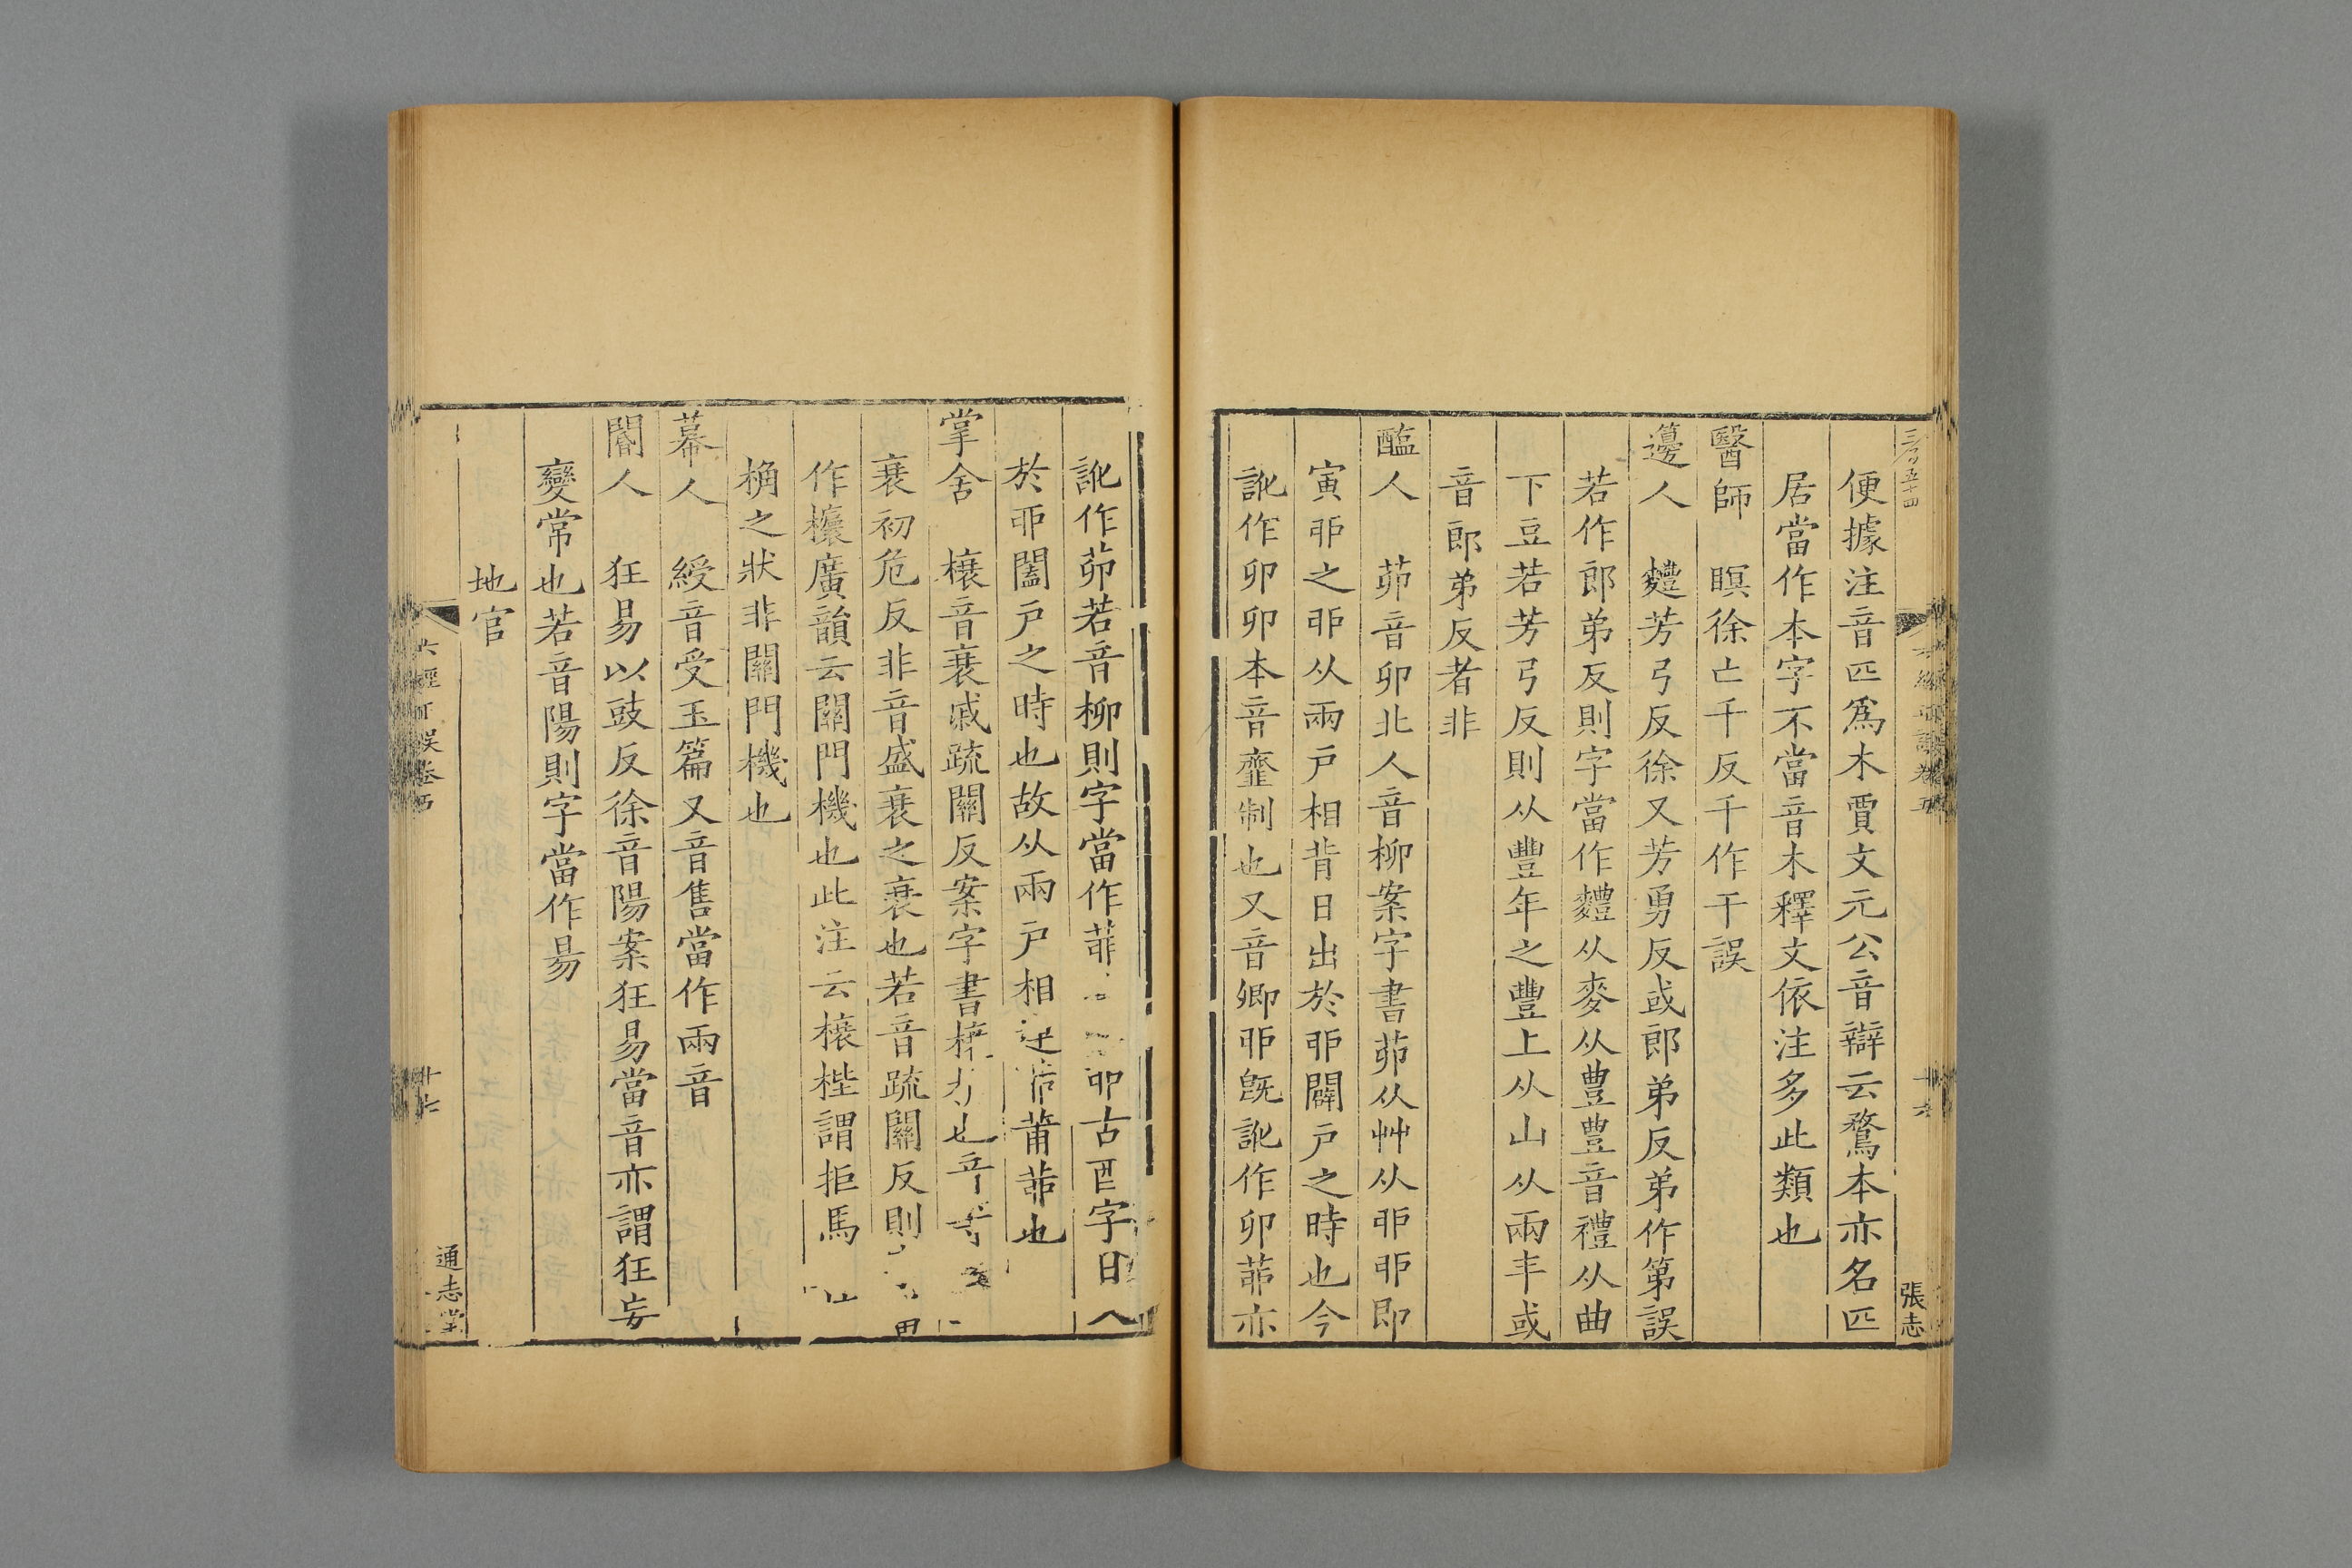 便據注音匹爲木賈文元公音辯云鶩本亦名匹
居當作本字不當音木釋文依注多此類也
醫師 瞑徐亡千反千作干誤
籩人 麷芳弓反徐又芳勇反或郎弟反弟作第誤
若作郎弟反則字當作𪍑从麥从豊豊音禮从曲
下豆若芳弓反則从豐年之豐上从山从兩丰或
音郎弟反者非
醢人 茆音卯北人音柳案字書茆从艸从丣丣即
寅丣之丣从兩戶相背日出於丣闢戶之時也今
訛作卯卯本音𩐎制也又音卿丣旣訛作卯茆亦
張志
訛作茆若音柳則字當作茆 卯古酉字日入
於丣闔戶之時也故从兩戶相 莆茆也
掌舍 榱音衰戚疏關反案字書榱 也
衰初危反非音盛衰之衰也若音疏關反則
作欀廣韻云關門機也此注云榱梐謂拒馬
桷之狀非關門機也
幕人 綬音受玉篇又音售當作兩音
閽人 狂易以豉反徐音陽案狂易當音亦謂狂妄
變常也若音陽則字當作昜
地官
六經正誤卷五
十七
通志堂